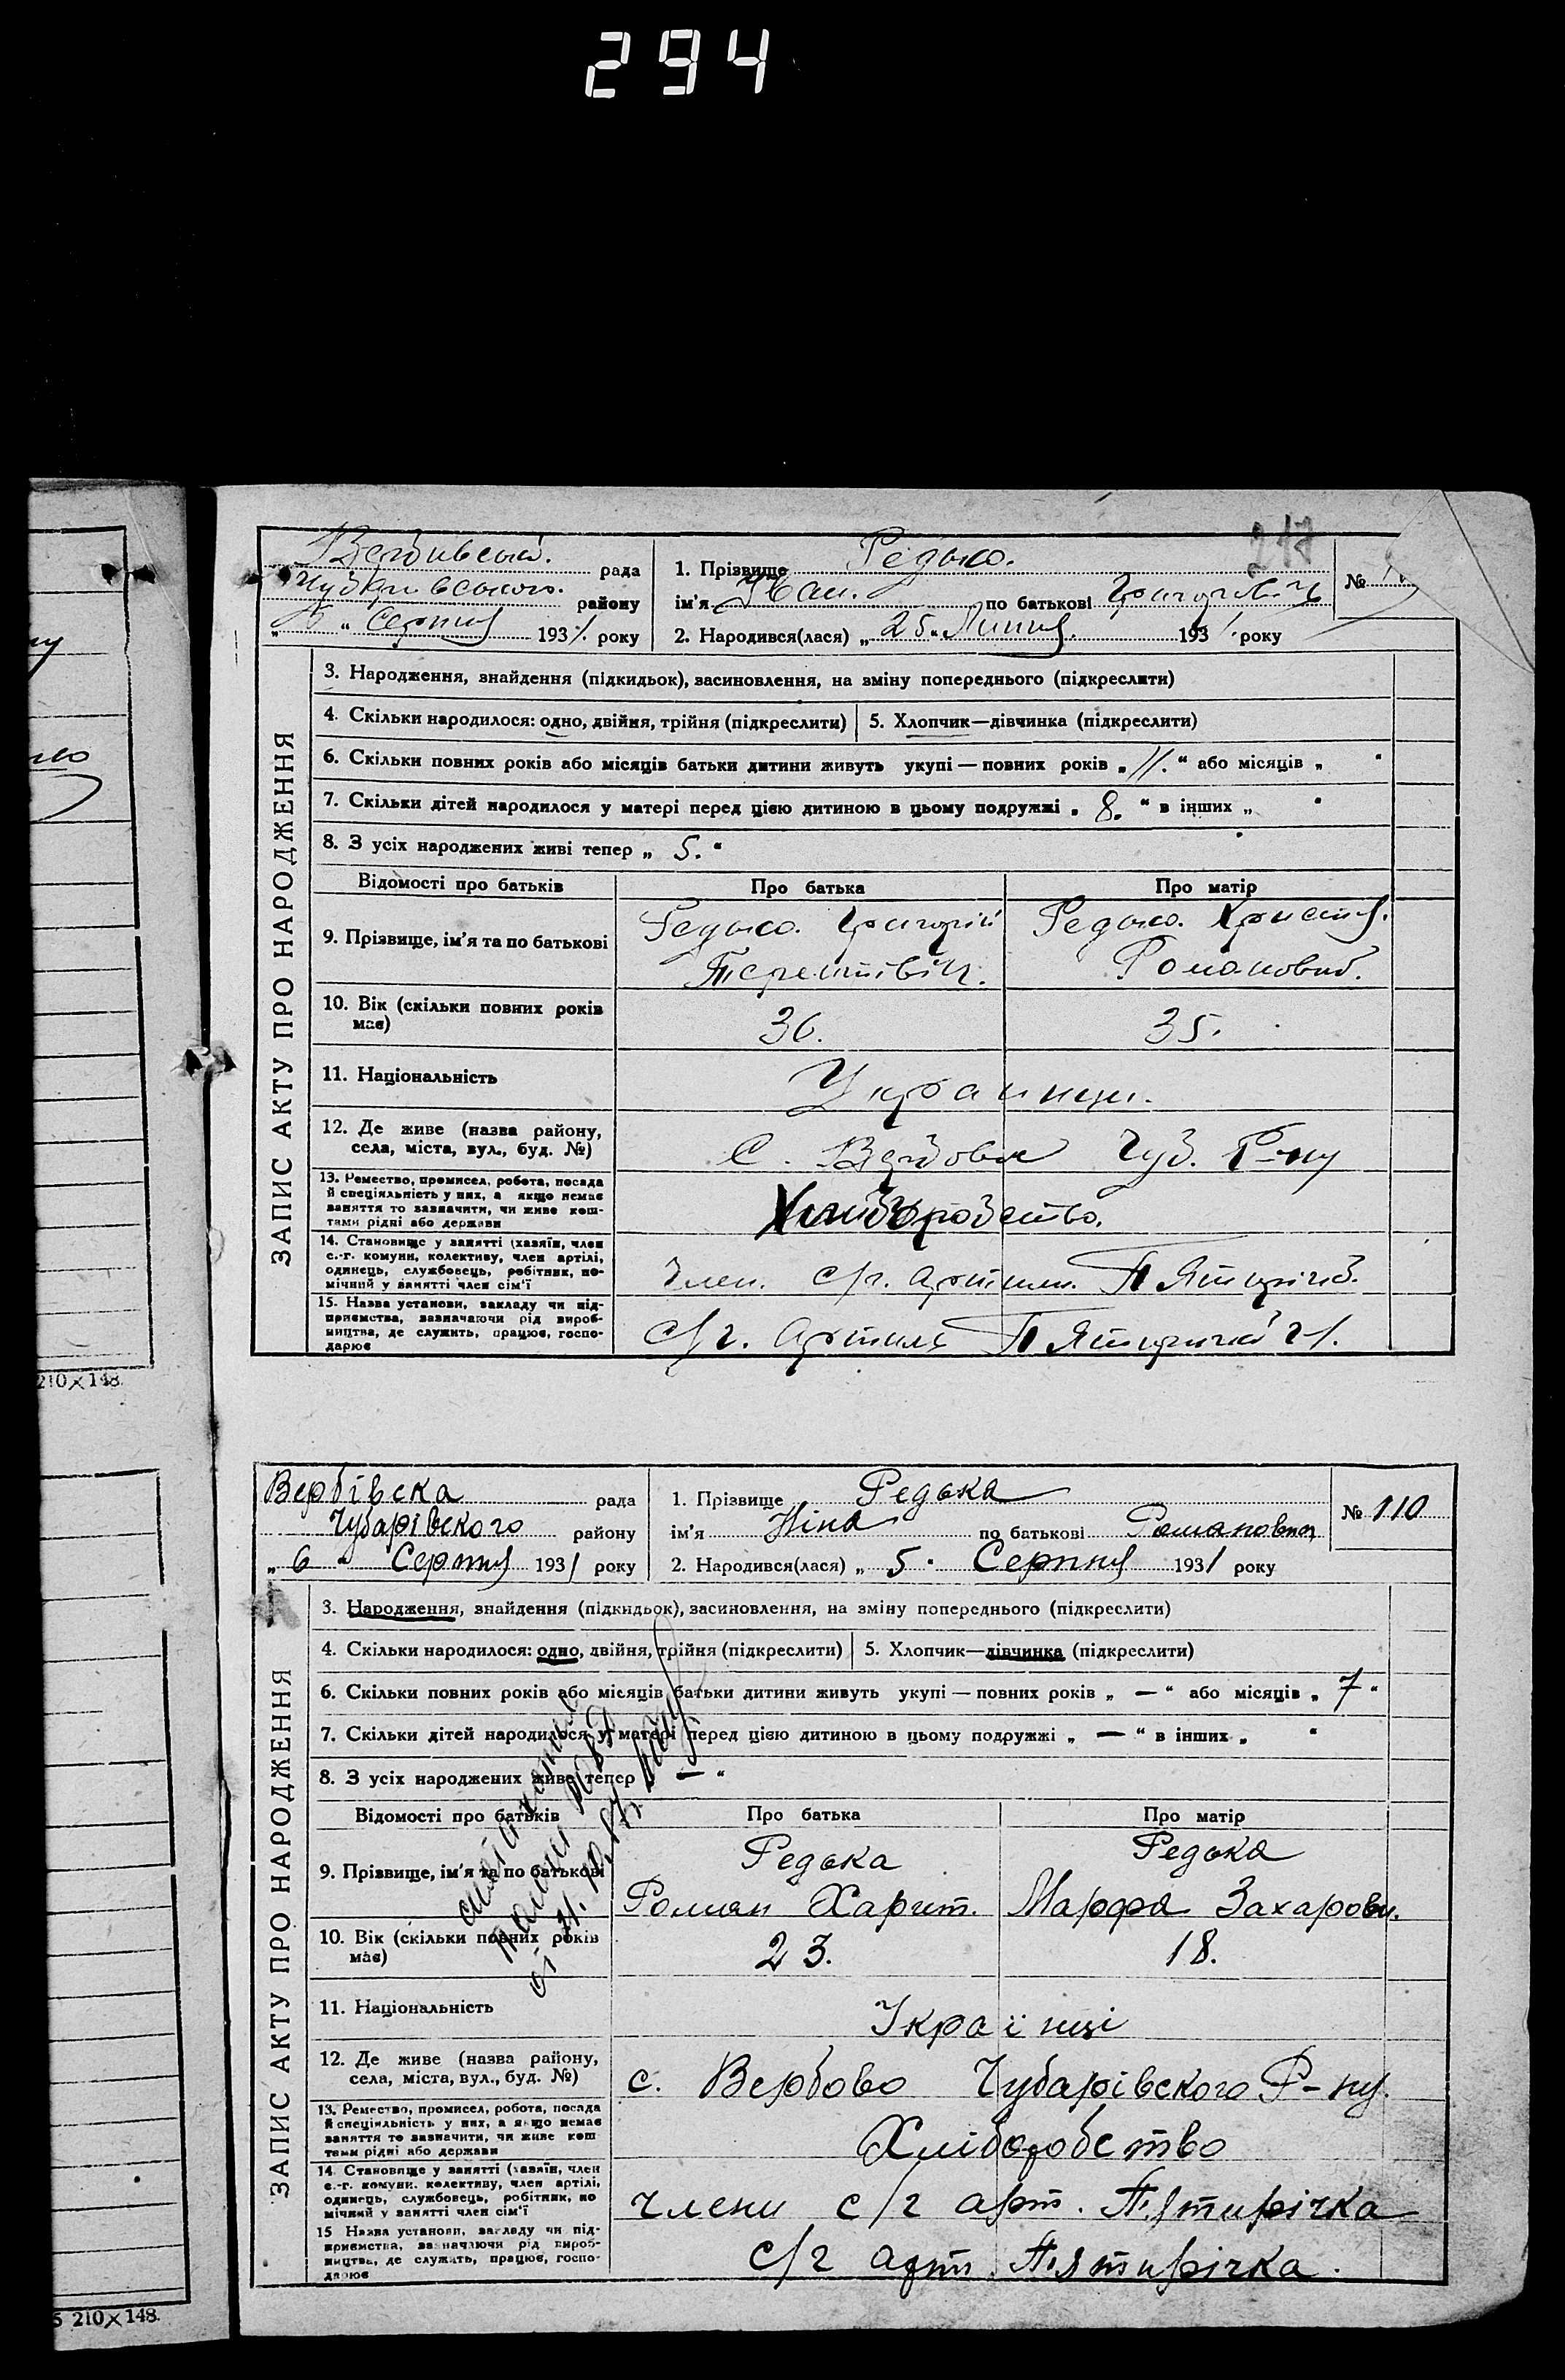 294
217
Вербивській. рада
Чубарівського. району
„ 6 “ Серпня 1931 року
1. Прізвище Редько.
ім'я Иван. по батькові Григоровичь
№
2. Народився(лася) „ 25 “ Липня. 1931 року
ЗАПИС АКТУ ПРО НАРОДЖЕННЯ
3. Народження, знайдення (підкидьок), засиновлення, на зміну попереднього (підкреслити)
4. Скільки народилося: одно, двійня, трійня (підкреслити) 5. Хлопчик—дівчинка (підкреслити)
6. Скільки повних років або місяців батьки дитини живуть укупі — повних років „ 11. “ або місяців „ “
7. Скільки дітей народилося у матері перед цією дитиною в цьому подружжі „ 8. “ в інших „ “
8. З усіх народжених живі тепер „ 5. “
Відомості про батьків Про батька Про матір
9. Прізвище, ім'я та по батькові Редько. Григорій Редько. Христя.
Романовна.
10. Вік (скільки повних років має) 36. 35.
11. Національність Украинци.
12. Де живе (назва району, села, міста, вул., буд. №) С. Вербове Чуб. Р-ну
13. Ремество, промисел, робота, посада й спеціяльність у них, а якщо немає заняття то зазначити, чи живе коштами рідні або держави Хлиборобство.
14. Становище у занятті (хазяїн, член с.-г. комуни, колективу, член артілі, одинець, службовець, робітник, помічний у занятті член сім'ї Член. с/г. артили. Пятирічк.
15. Назва установи, закладу чи підприємства, зазначаючи рід виробництва, де служить, працює, господарює с/г. Артиль
210×148.
Вербівска рада
Чубарівского району
„ 6 “ Серпня 1931 року
1. Прізвище Редька
ім'я Ніна по батькові Романовна
№ 110
2. Народився(лася) „ 5. Серпня 1931 року
ЗАПИС АКТУ ПРО НАРОДЖЕННЯ
3. Народження, знайдення (підкидьок), засиновлення, на зміну попереднього (підкреслити)
4. Скільки народилося: одно, двійня, трійня (підкреслити) 5. Хлопчик—дівчинка (підкреслити)
6. Скільки повних років або місяців батьки дитини живуть укупі — повних років „ — “ або місяців „ 7 “
7. Скільки дітей народилося у матері перед цією дитиною в цьому подружжі „ — “ в інших „ “
8. З усіх народжених живе тепер „ — “
Відомості про батьків Про батька Про матір
9. Прізвище, ім'я та по батькові Редька Редька
Роман Харит. Марфа Захарови.
10. Вік (скільки повних років має) 23. 18.
11. Національність Українці
12. Де живе (назва району, села, міста, вул., буд. №) с. Вербово Чубарівского Р-ну.
13. Ремество, промисел, робота, посада й спеціяльність у них, а якщо немає заняття то зазначити, чи живе коштами рідні або держави Хліборобство
14. Становище у занятті (хазяїн, член с.-г. комуни, колективу, член артілі, одинець, службовець, робітник, помічний у занятті член сім'ї члени с/г арт. П'ятирічка
15 Назва установи, закладу чи підприємства, зазначаючи рід виробництва, де служить, працює, господарює с/г арт. П'ятирічка.
210×148.